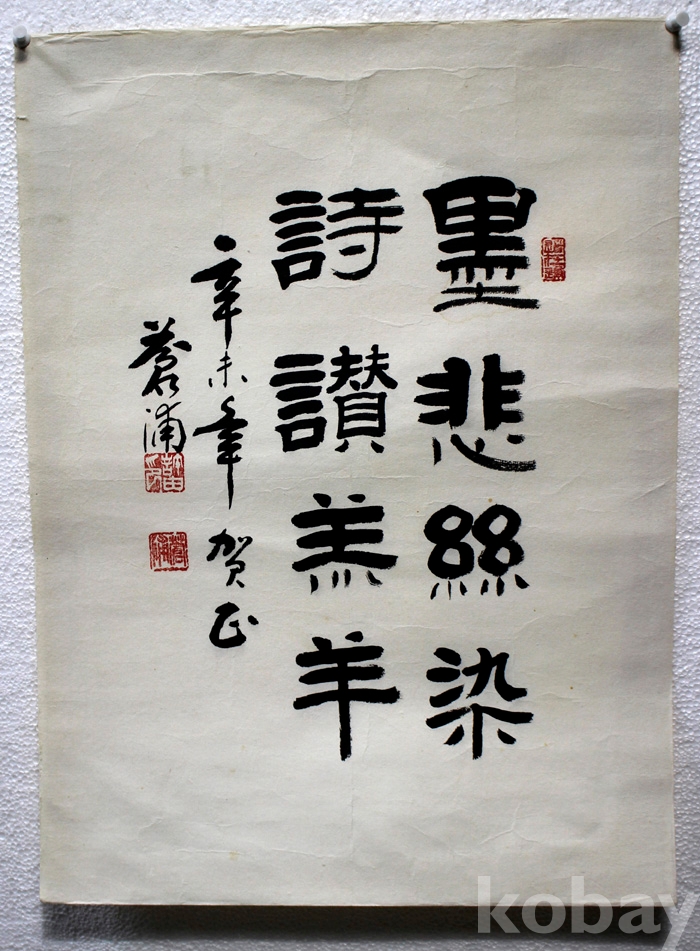 墨悲絲染
詩讃羔羊
辛未年賀正
蒼浦
kobay